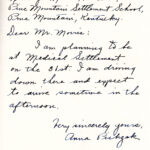 Pine Mountain Settlement School,
Pine Mountain, Kentucky.
Dear Mr. Morris:
I am planning to be
at Medical Settlement
on the 31st. I am driving
down there and expect
to arrive sometime in the
afternoon.
Very sincerely yours,
Anna